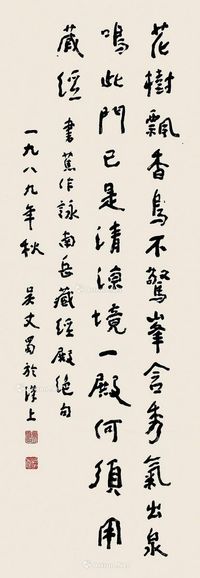 花樹飄香鳥不驚峯含秀氣出泉
鳴此門已是清涼境一殿何須用
藏經 書舊作詠南岳藏經殿絕句
一九八九年秋 吴丈蜀於漢上